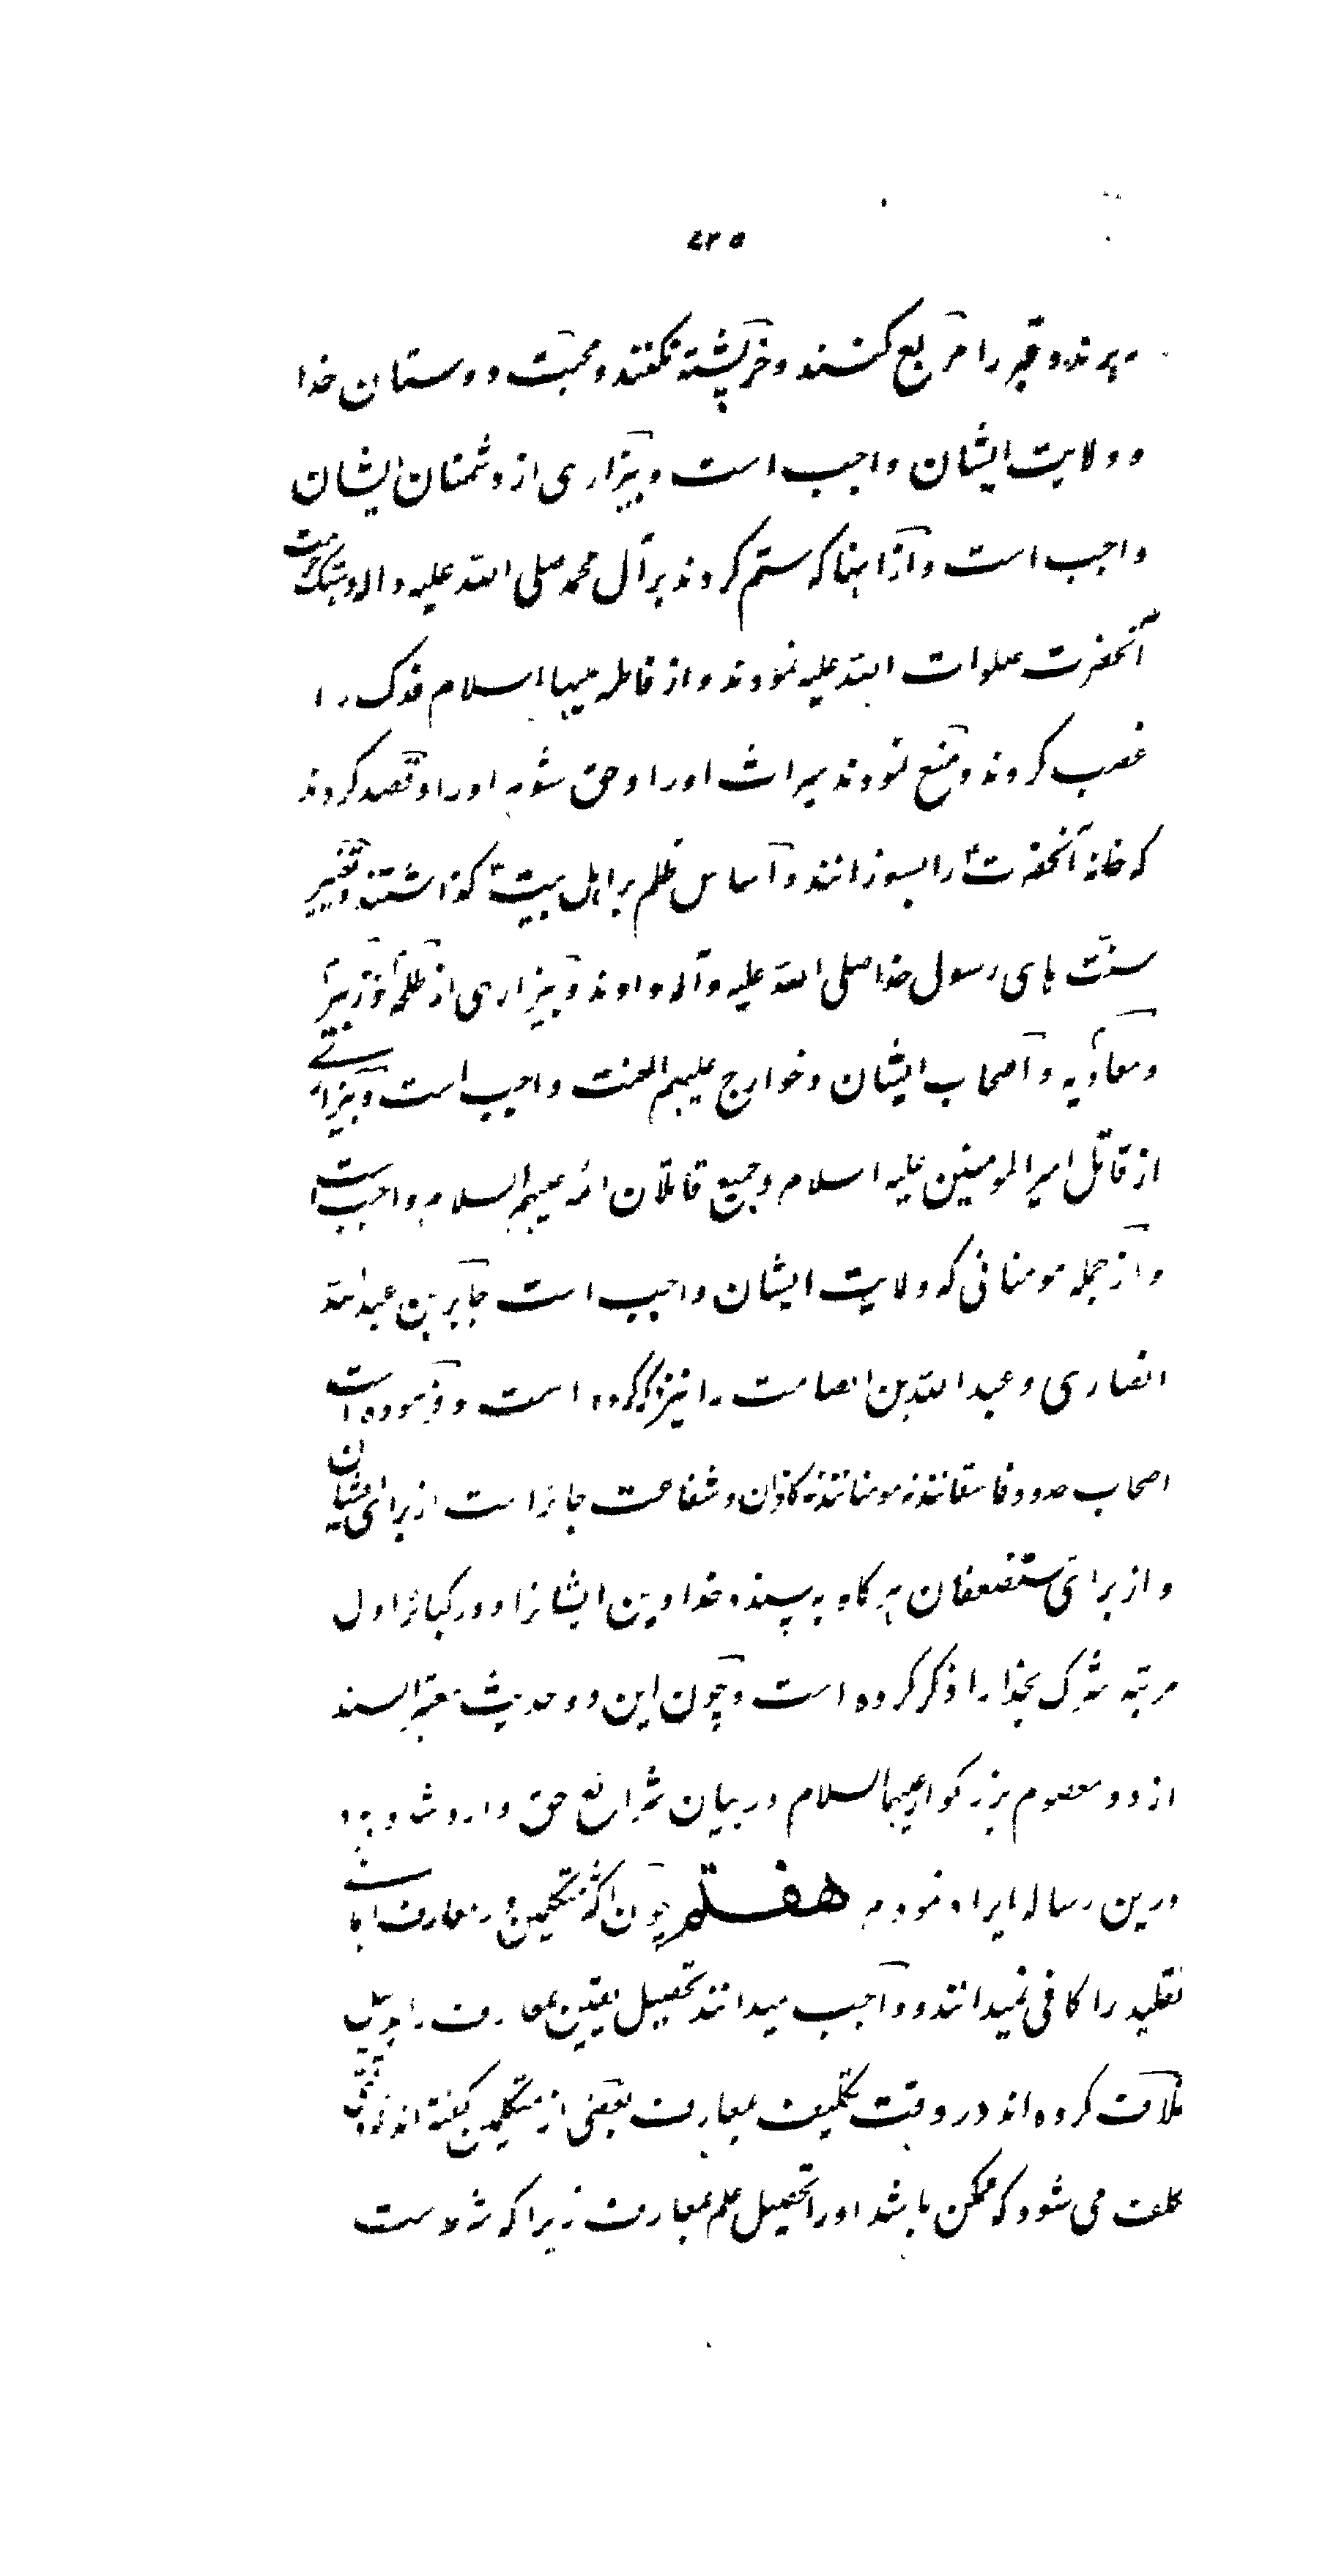 ۴۲۵
برند و قبر را مربع کنند و خرپشته نکنند و محبت دوستان خدا
و ولایت ایشان واجب است و بیزاری از دشمنان ایشان
واجب است و از آنها که ستم کردند بر آل محمد صلی الله علیه و اله و هتک حرمت
آنحضرت صلوات الله علیه نمودند و از فاطمه علیها السلام فدک را
غصب کردند و منع نمودند میراث او را و حق شوهر او را و قصد کردند
که خانه آنحضرت را بسوزانند و اساس ظلم بر اهل بیت گذاشتند و تغییر
سنت های رسول خدا صلی الله علیه و آله دادند و بیزاری از طلحه و زبیر
و معاویه و اصحاب ایشان و خوارج علیهم اللعنت واجب است و بیزاری
از قاتل امیر المومنین علیه السلام و جمیع قاتلان ائمه علیهم السلام واجب است
و از جمله مومنانی که ولایت ایشان واجب است جابر بن عبدالله
انصاری و عبد الله بن الصامت را نیز ذکر کرده است و فرموده است
اصحاب حدود فاسقانند نه مومنانند نه کافران و شفاعت جایز است از برای ایشان
و از برای مستضعفان هر گاه به پسندد خدا دین ایشانرا و در کبایر اول
مرتبه شرک بخدا را ذکر کرده است و چون این دو حدیث معتبر السند
از دو معصوم بزرگوار علیهما السلام در بیان شرائع حق وارد شده بود
درین رساله ایراد نمودم هفتم چون اکثر متکلمین در معارف ایمانی
تقلید را کافی نمیدانند و واجب میدانند تحصیل یقین بمعارف را بدلیل
خلاف کرده اند در وقت تکلیف بمعارف بعضی از متکلمین گفته اند
مکلف می شود که ممکن باشد او را تحصیل علم بمعارف زیرا که شرط است